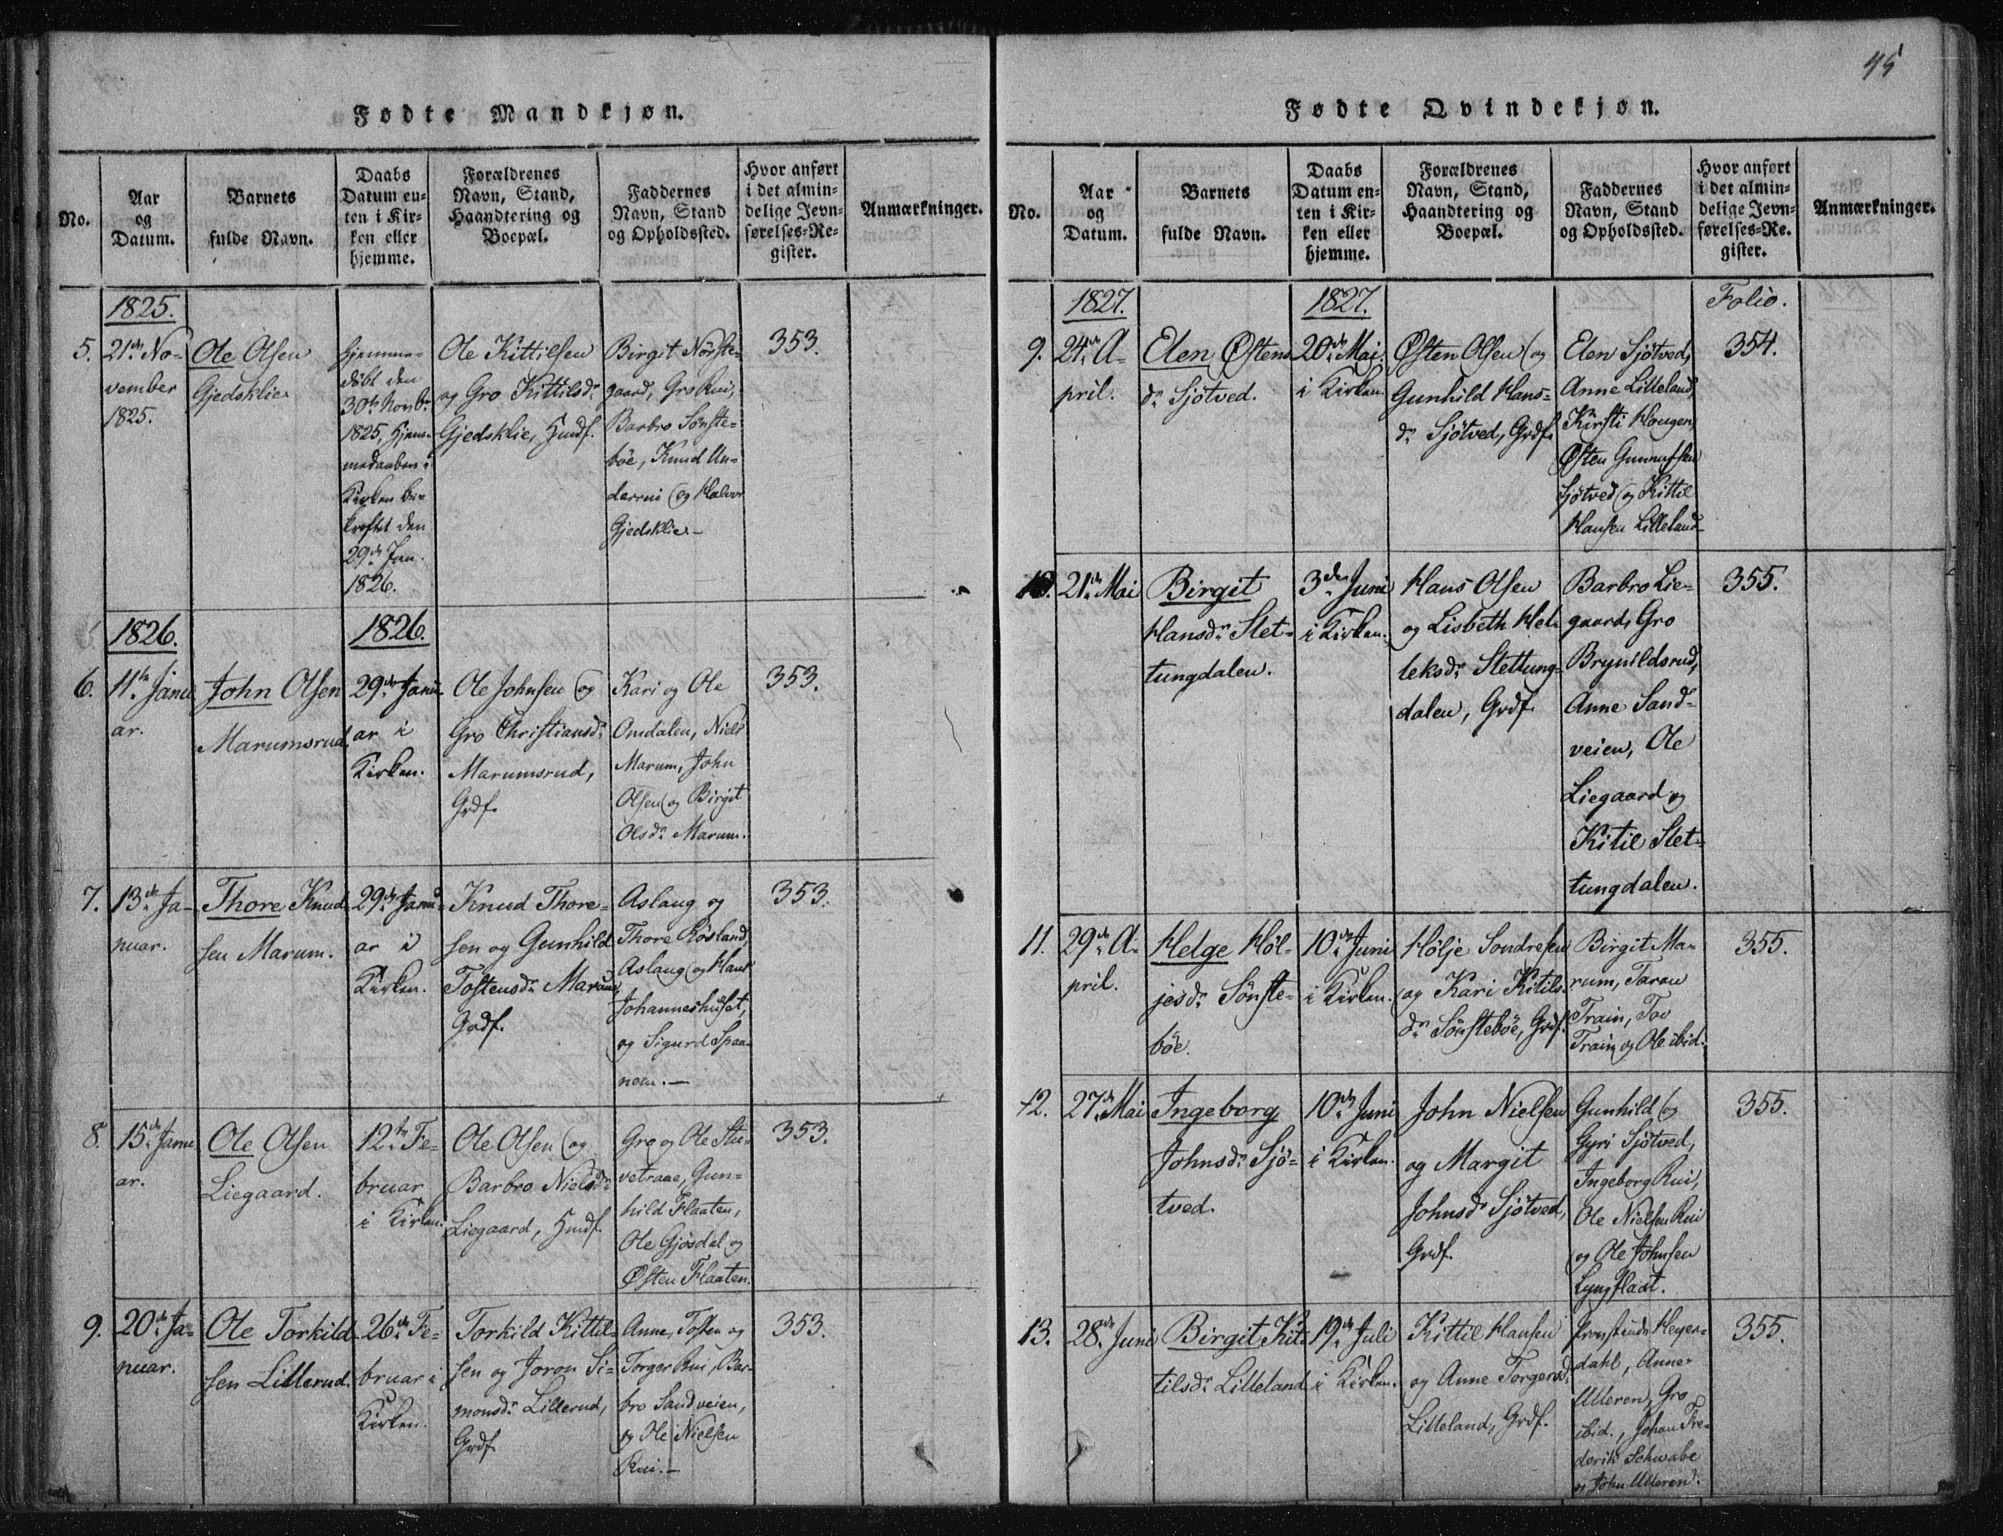 45
Fødte Mandkjøn.
No.
Aar
og
Datum.
Barnets
fulde Navn.
Daabs
Datum en-
ten i Kir-
ken eller
hjemme.
Forældrenes
Navn, Stand,
Haandtering og
Boepæl.
Faddernes
Navn, Stand
og Opholdssted.
Hvor anført
i det almin-
delige Jevn-
førelses-Re-
gister.
Anmærkninger.
1825.
5.
21de No-
vember
1825.
Ole Olsen
Gjedsklie
hjemme-
döbt den
30te Novbr
1825, Hjem-
medaaben i
Kirken be-
kræftet den
29de Jan.
1826.
Ole Kittilsen
og Gro Kittilsdr
Gjedsklie, Huusf.
Birgit Nørste-
gaard, Gro Rui,
Barbro Sönste-
böe, Knud Un-
derrui og Halvor
Gjedsklie –
353.
1826.
1826.
6.
11te Janu
ar.
John Olsen
Marumsrud.
29de Janu-
ar i
Kirken.
Ole Johnsen og
Gro Christiansdr
Marumsrud,
Grdf.
Kari og Ole
Omdalen, Niels
Marum, John
Olsen og Birgit
Olsdr Marum.
353.
7.
13de Ja-
nuar.
Thore Knud
sen Marum.
29de Janu-
ar i
Kirken.
Knud Thore-
sen og Gunhild
Tostensdr Marum
Grdf.
Aslaug og
Thore Røsland,
Aslaug og Hans
Johanneshuset,
og Sigurd Spaa-
nem. –
353.
8.
15de Janu
ar.
Ole Olsen
Liegaard.
12te Fe-
bruar
i Kirken.
Ole Olsen og
Barbro Nielsdr
Liegaard, Huusf.
Gro og Ole Stu-
vetrane, Gun-
hild Flaaten,
Ole Gjösdal og
Østen Flaaten.
353.
9.
20de Ja-
nuar.
Ole Torkild
sen Lillerud.
26de Fe-
bruar i
Kirken.
Torkild Kittil-
sen og Joron Si-
monsdr Lillerud,
Grdf.
Anne, Tosten og
Torger Rui, Bar-
bro Sandveien,
og Ole Nielsen
Rui. –
353.
Fødte Qvindekjøn.
No.
Aar
og
Datum.
Barnets
fulde Navn.
Daabs
Datum en-
ten i Kir-
ken eller
hjemme.
Forældrenes
Navn, Stand,
Haandtering og
Boepæl.
Faddernes
Navn, Stand
og Opholdssted.
Hvor anført
i det almin-
delige Jevn-
førelses-Re-
gister.
Anmærkninger.
1827.
1827.
Folio.
9.
24de A-
pril.
Elen Østens
dr Sjötved.
20de Mai.
i Kirken.
Østen Olsen og
Gunhild Hans-
dr Sjötved, Grdf.
Elen Sjötved,
Anne Lilleland,
Kirsti Hougen,
Østen Gunnufsen
Sjötved og Kittil
Hansen Lilleland –
354.
10.
21de Mai
Birgit
Hansdr Stet-
tungdalen.
3den Juni
i Kirken.
Hans Olsen
og Lisbeth Hel-
leksdr Stettung-
dalen, Grdf.
Barbro Lie-
gaard, Gro
Brynildsrud,
Anne Sand-
veien, Ole
Liegaard og
Kitil Stet-
tungdalen.
355.
11.
29de A-
pril.
Helge Høl-
jesdr Sönste-
böe.
10de Juni
i Kirken.
Hölje Sondresen
og Kari Kitils-
dr Sönsteböe, Grdf.
Birgit Ma-
rum, Taran
Train, Tov
Train og Ole ibid.
355.
12.
27de Mai
Ingeborg
Johnsdr Sjö-
tved.
10de Juni
i Kirken.
John Nielsen
og Margit
Johnsdr Sjötved,
Grdf.
Gunhild og
Gyri Sjötved,
Ingeborg Rui,
Ole Nielsen Rui
og Ole Johnsen
Lyngflaat.
355.
13.
28de Juni
Birgit Kit-
tilsdr Lilleland
19de Juli
i Kirken.
Kittil Hansen
og Anne Torgersdr
Lilleland, Grdf.
Heyer-
dahl, Anne
Ulleren, Gro
ibid., Johan Fre-
derik Schwabe
og John Ulleren.
355.